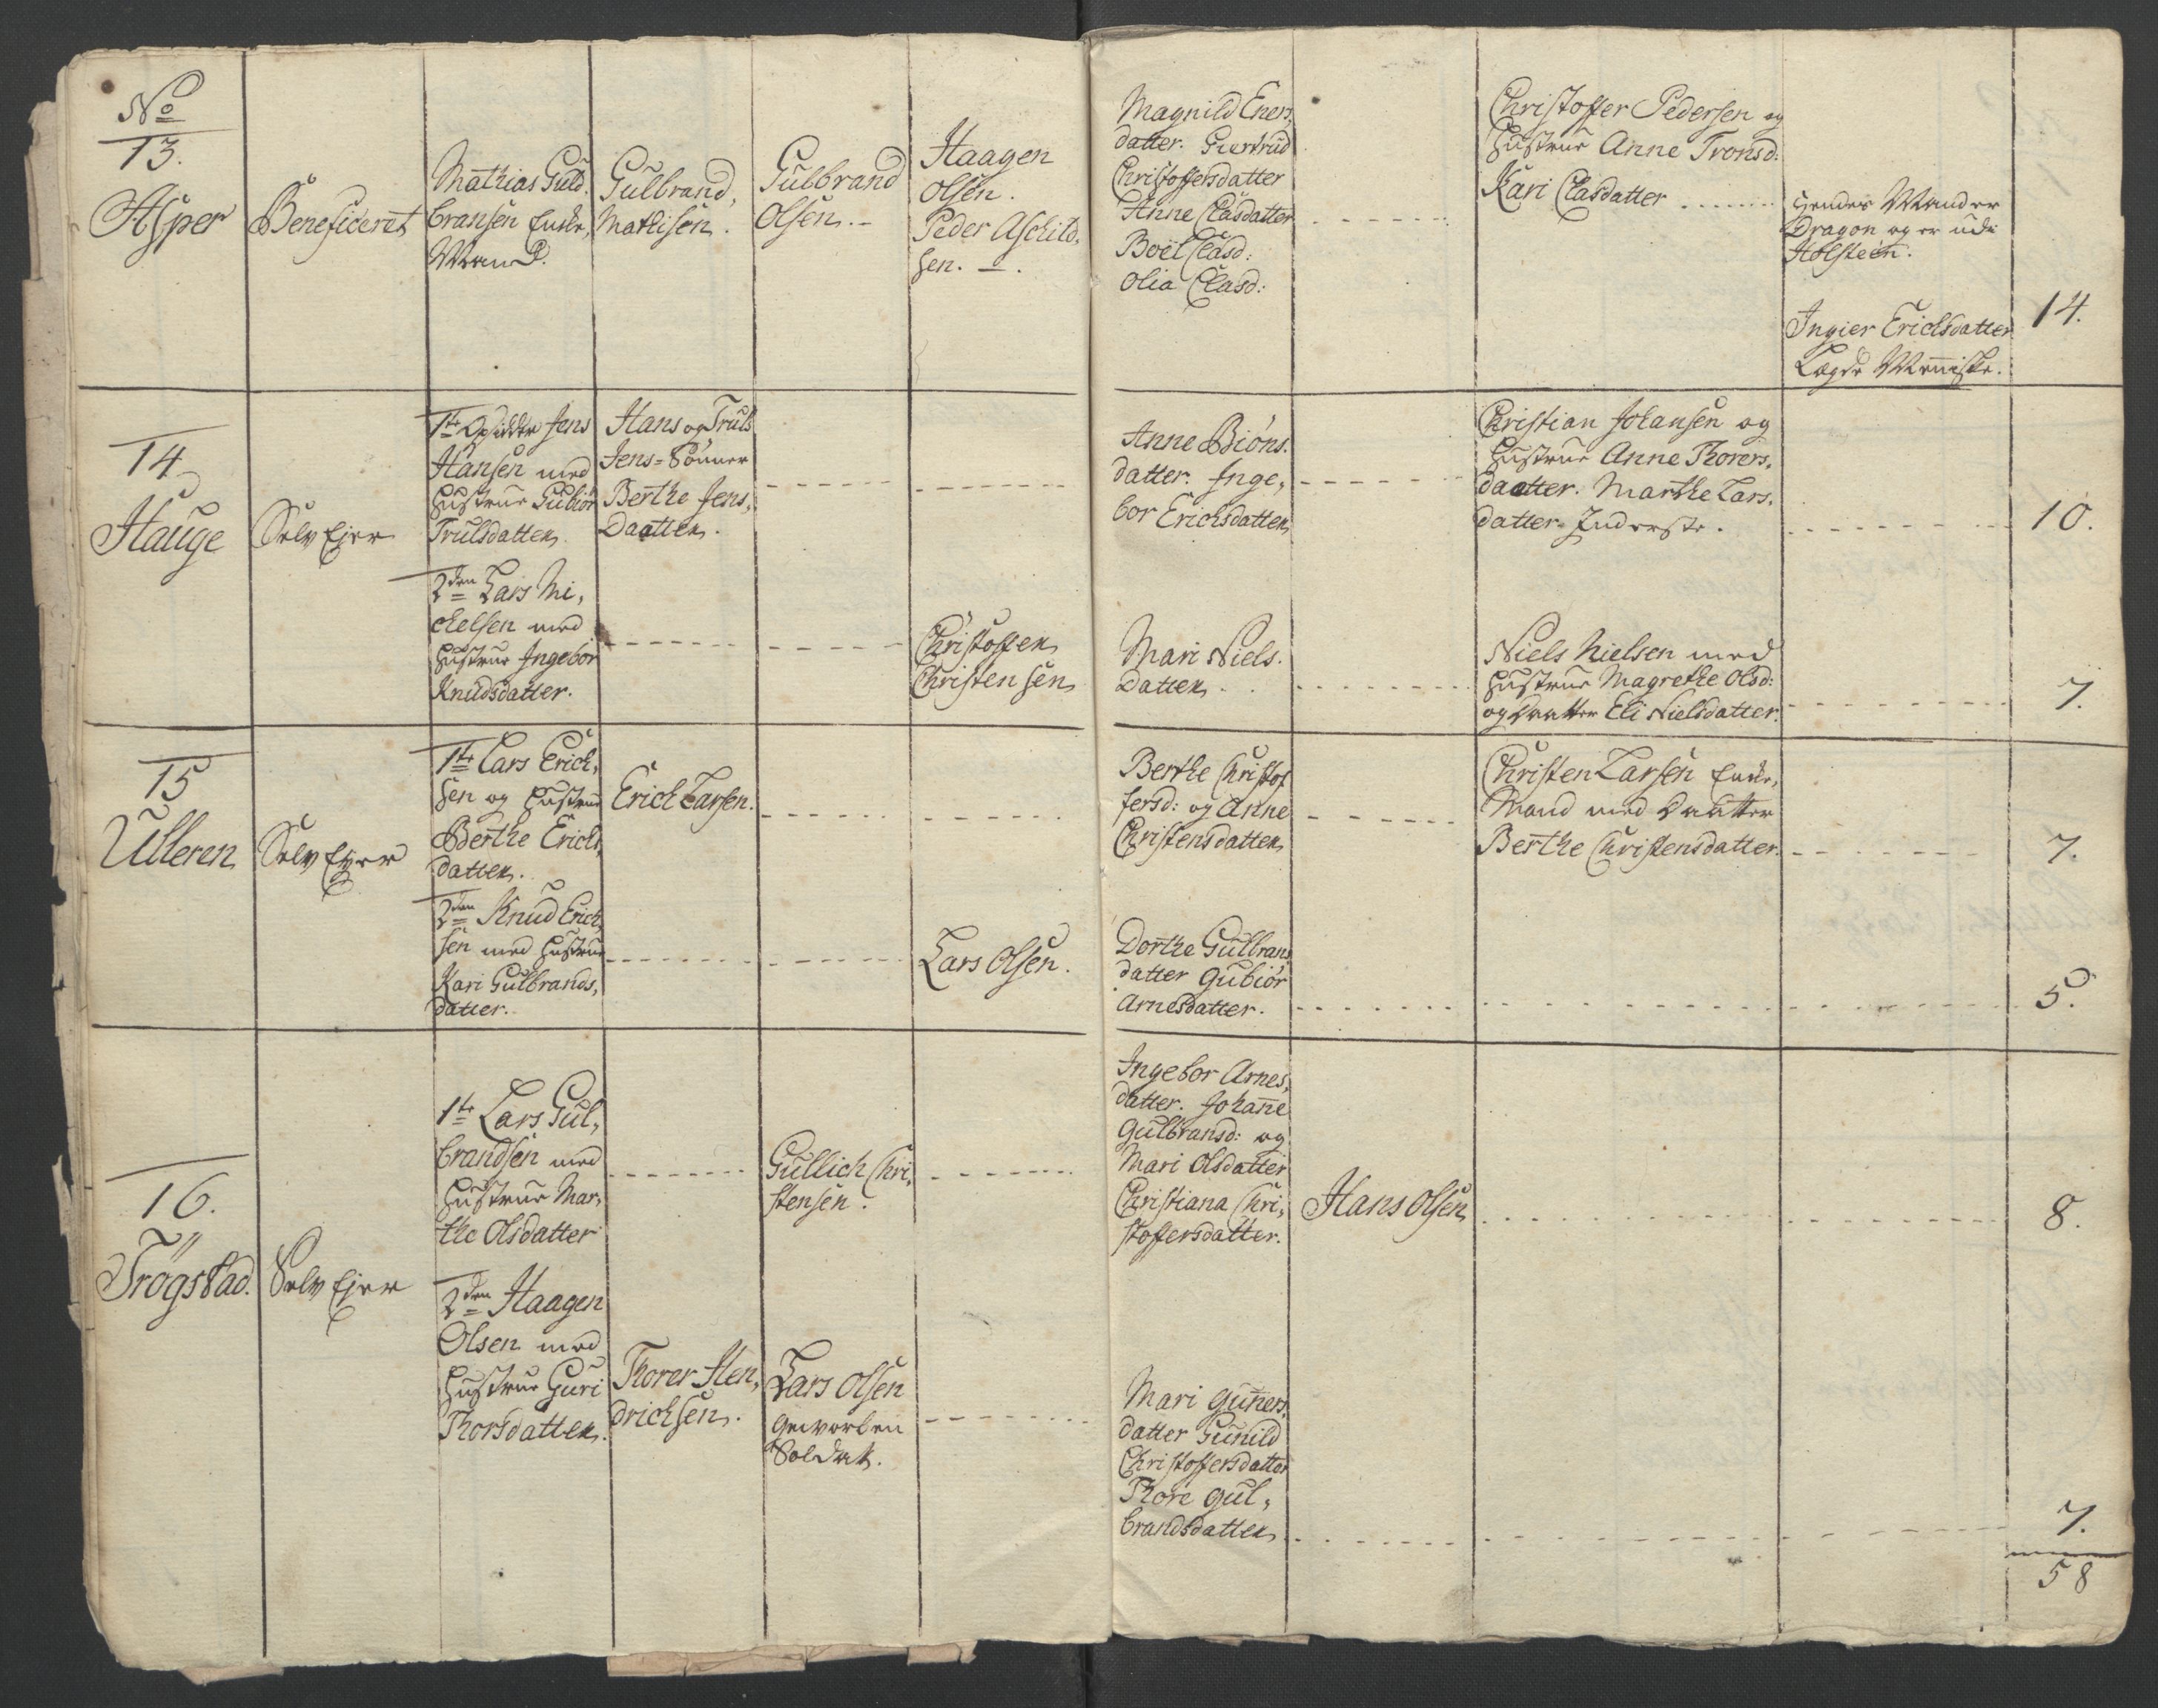 No
13.
Asper
Beneficeret
Mathias Guld,
bransen Enke,
Mand.
Gulbrand,
Mathisen.
Gulbrand
Olsen.
Haagen
Olsen.
Peder Aschild,
sen.
Magnild Eners,
datter. Giertrud
Christoffersdatter
Anne Clasdatter
Boel Clasd:
Olia Clasd:
Christoffer Pedersen og
Hustrue Anne Tronsd:
Kari Clasdatter
hendes Mand er
Dragon og er ude i
Holsteen.
Ingier Erichsdatter
Lægds Menniske.
14.
14
Hauge
Selv Ejer
1te Opsidder Jens
Hansen med
Hustrue Gubiør
Trulsdatter.
Hans og Truls
Jens=Sønner
Berthe Jens,
Daatter.
Anne Biøns,
datter. Inge,
bor Erichsdatter
Christian Johansen og
Hustrue Anne Thorers,
daatter. Marthe Lars,
datter Inderste.
10.
2den Lars Mi,
chelsen med
Hustrue Ingebor
Knudsdatter.
Christoffer
Christensen
Mari Niels,
Datter.
Niels Nielsen med
Hustrue Magrethe Olsd:
og Daatter Eli Nielsdatter.
7.
15
Ulleren
Selv Ejer
1te Lars Erich,
sen og Hustrue
Berthe Erichs,
datter.
Erich Larsen.
Berthe Christof
fersd: og Anne
Christensdatter
Christen Larsen Enke,
Mand med Daatter
Berthe Christensdatter.
7.
2den Knud Erich,
sen med Hustrue
Kari Gulbrands,
datter.
Lars Olsen.
Dorthe Gulbrans
datter Gubiør
Arnesdatter.
5.
16.
Trøgstad.
Selv Ejer
1te Lars Gul,
brandsen med
Hustrue Mar,
the Olsdatter
Gullich Chri,
stensen.
Ingebor Arnes,
datter. Johanne
Gulbransd: og
Mari Olsdatter
Christiana Chri,
stoffersdatter.
Hans Olsen
8.
2den Haagen
Olsen med
Hustrue Guri
Thorsdatter.
Thorer Hen,
drichsen.
Lars Olsen
Geworben
Soldat.
Mari Guners,
datter Gunild
Christoffersdatter
Thore Gul,
brandsdatter
7.
58